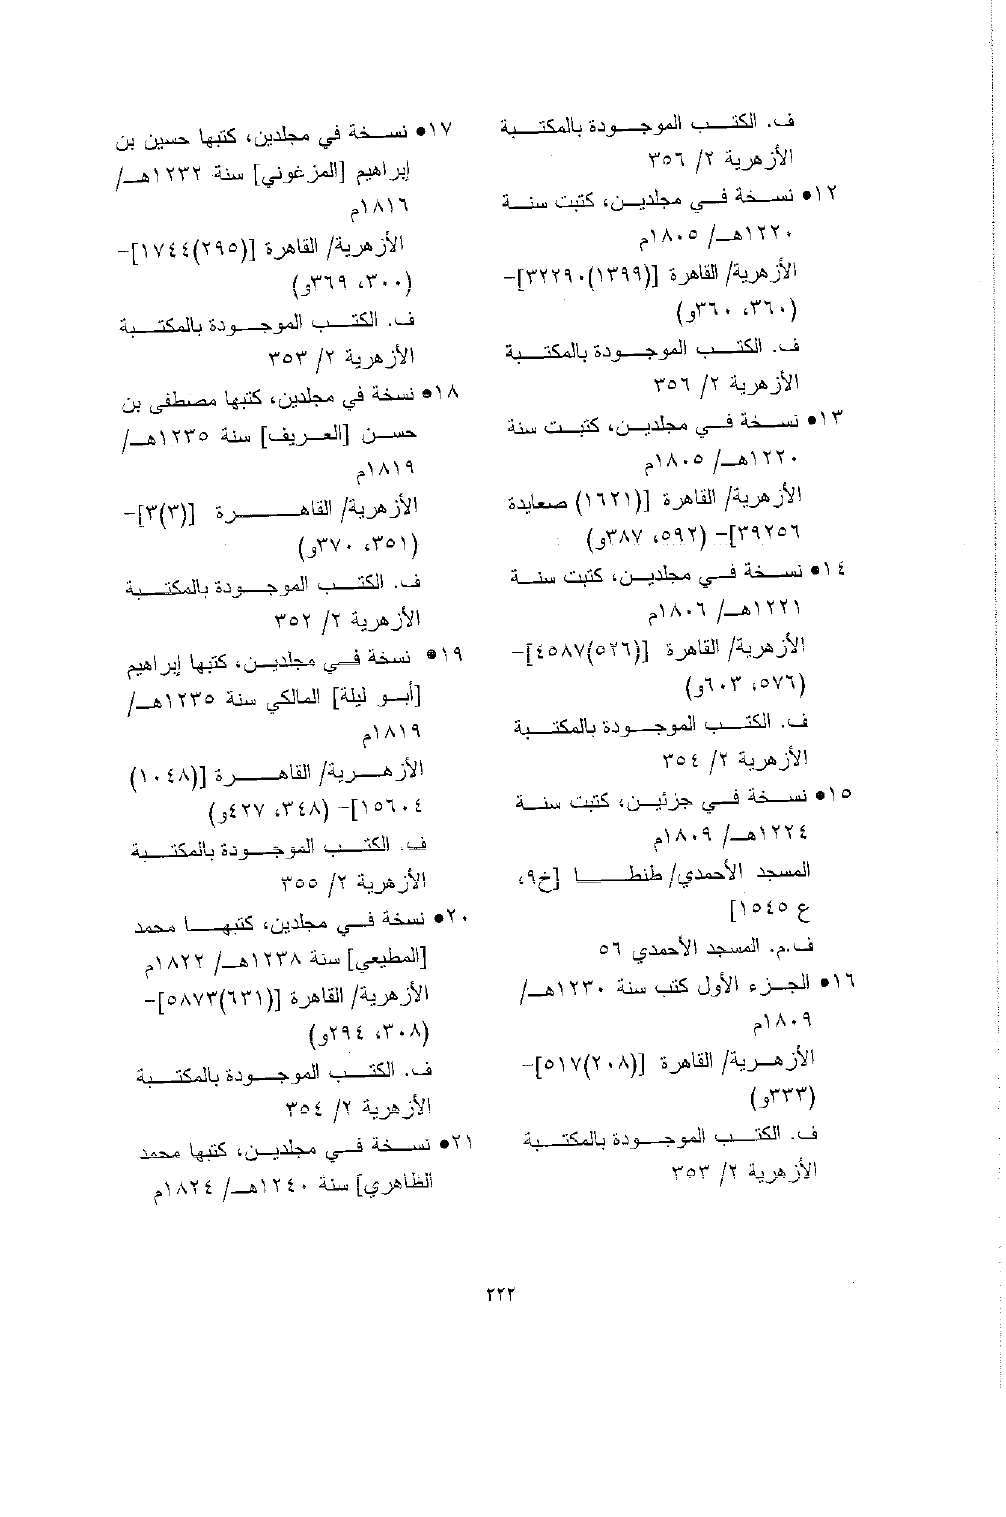 ف. الكتب الموجودة بالمكتبة
الأزهرية ٢/ ٣٥٦
١٢• نسخة في مجلدين، كتبت سنة
١٢٢٠هـ/ ١٨٠٥م
الأزهرية/ القاهرة [(١٣٩٩)٣٢٢٩٠]-
(٣٦٠، ٣٦٠و)
ف. الكتب الموجودة بالمكتبة
الأزهرية ٢/ ٣٥٦
١٣• نسخة في مجلدين، كتبت سنة
١٢٢٠هـ/ ١٨٠٥م
الأزهرية/ القاهرة [(١٦٢١) صعايدة
٣٩٢٥٦]- (٥٩٢، ٣٨٧و)
١٤• نسخة في مجلدين، كتبت سنة
١٢٢١هـ/ ١٨٠٦م
الأزهرية/ القاهرة [(٥٢٦)٤٥٨٧]-
(٥٧٦، ٦٠٣و)
ف. الكتب الموجودة بالمكتبة
الأزهرية ٢/ ٣٥٤
١٥• نسخة في جزئين، كتبت سنة
١٢٢٤هـ/ ١٨٠٩م
المسجد الأحمدي/ طنطا [خ٩،
ع ١٥٤٥]
ف.م. المسجد الأحمدي ٥٦
١٦• الجزء الأول كتب سنة ١٢٣٠هـ/
١٨٠٩م
الأزهرية/ القاهرة [(٢٠٨)٥١٧]-
(٣٣٣و)
ف. الكتب الموجودة بالمكتبة
الأزهرية ٢/ ٣٥٣
١٧• نسخة في مجلدين، كتبها حسين بن
إبراهيم [المزغوني] سنة ١٢٣٢هـ/
١٨١٦م
الأزهرية/ القاهرة [(٢٩٥)١٧٤٤]-
(٣٠٠، ٣٦٩و)
ف. الكتب الموجودة بالمكتبة
الأزهرية ٢/ ٣٥٣
١٨• نسخة في مجلدين، كتبها مصطفى بن
حسن [العريف] سنة ١٢٣٥هـ/
١٨١٩م
الأزهرية/ القاهرة [(٣)٣]-
(٣٥١، ٣٧٠و)
ف. الكتب الموجودة بالمكتبة
الأزهرية ٢/ ٣٥٢
١٩• نسخة في مجلدين، كتبها إبراهيم
[أبو ليلة] المالكي سنة ١٢٣٥هـ/
١٨١٩م
الأزهرية/ القاهرة [(١٠٤٨)
١٥٦٠٤]- (٣٤٨، ٤٢٧و)
ف. الكتب الموجودة بالمكتبة
الأزهرية ٢/ ٣٥٥
٢٠• نسخة في مجلدين، كتبها محمد
[المطيعي] سنة ١٢٣٨هـ/ ١٨٢٢م
الأزهرية/ القاهرة [(٦٣١)٥٨٧٣]-
(٣٠٨، ٢٩٤و)
ف. الكتب الموجودة بالمكتبة
الأزهرية ٢/ ٣٥٤
٢١• نسخة في مجلدين، كتبها محمد
الظاهري] سنة ١٢٤٠هـ/ ١٨٢٤م
٢٢٢